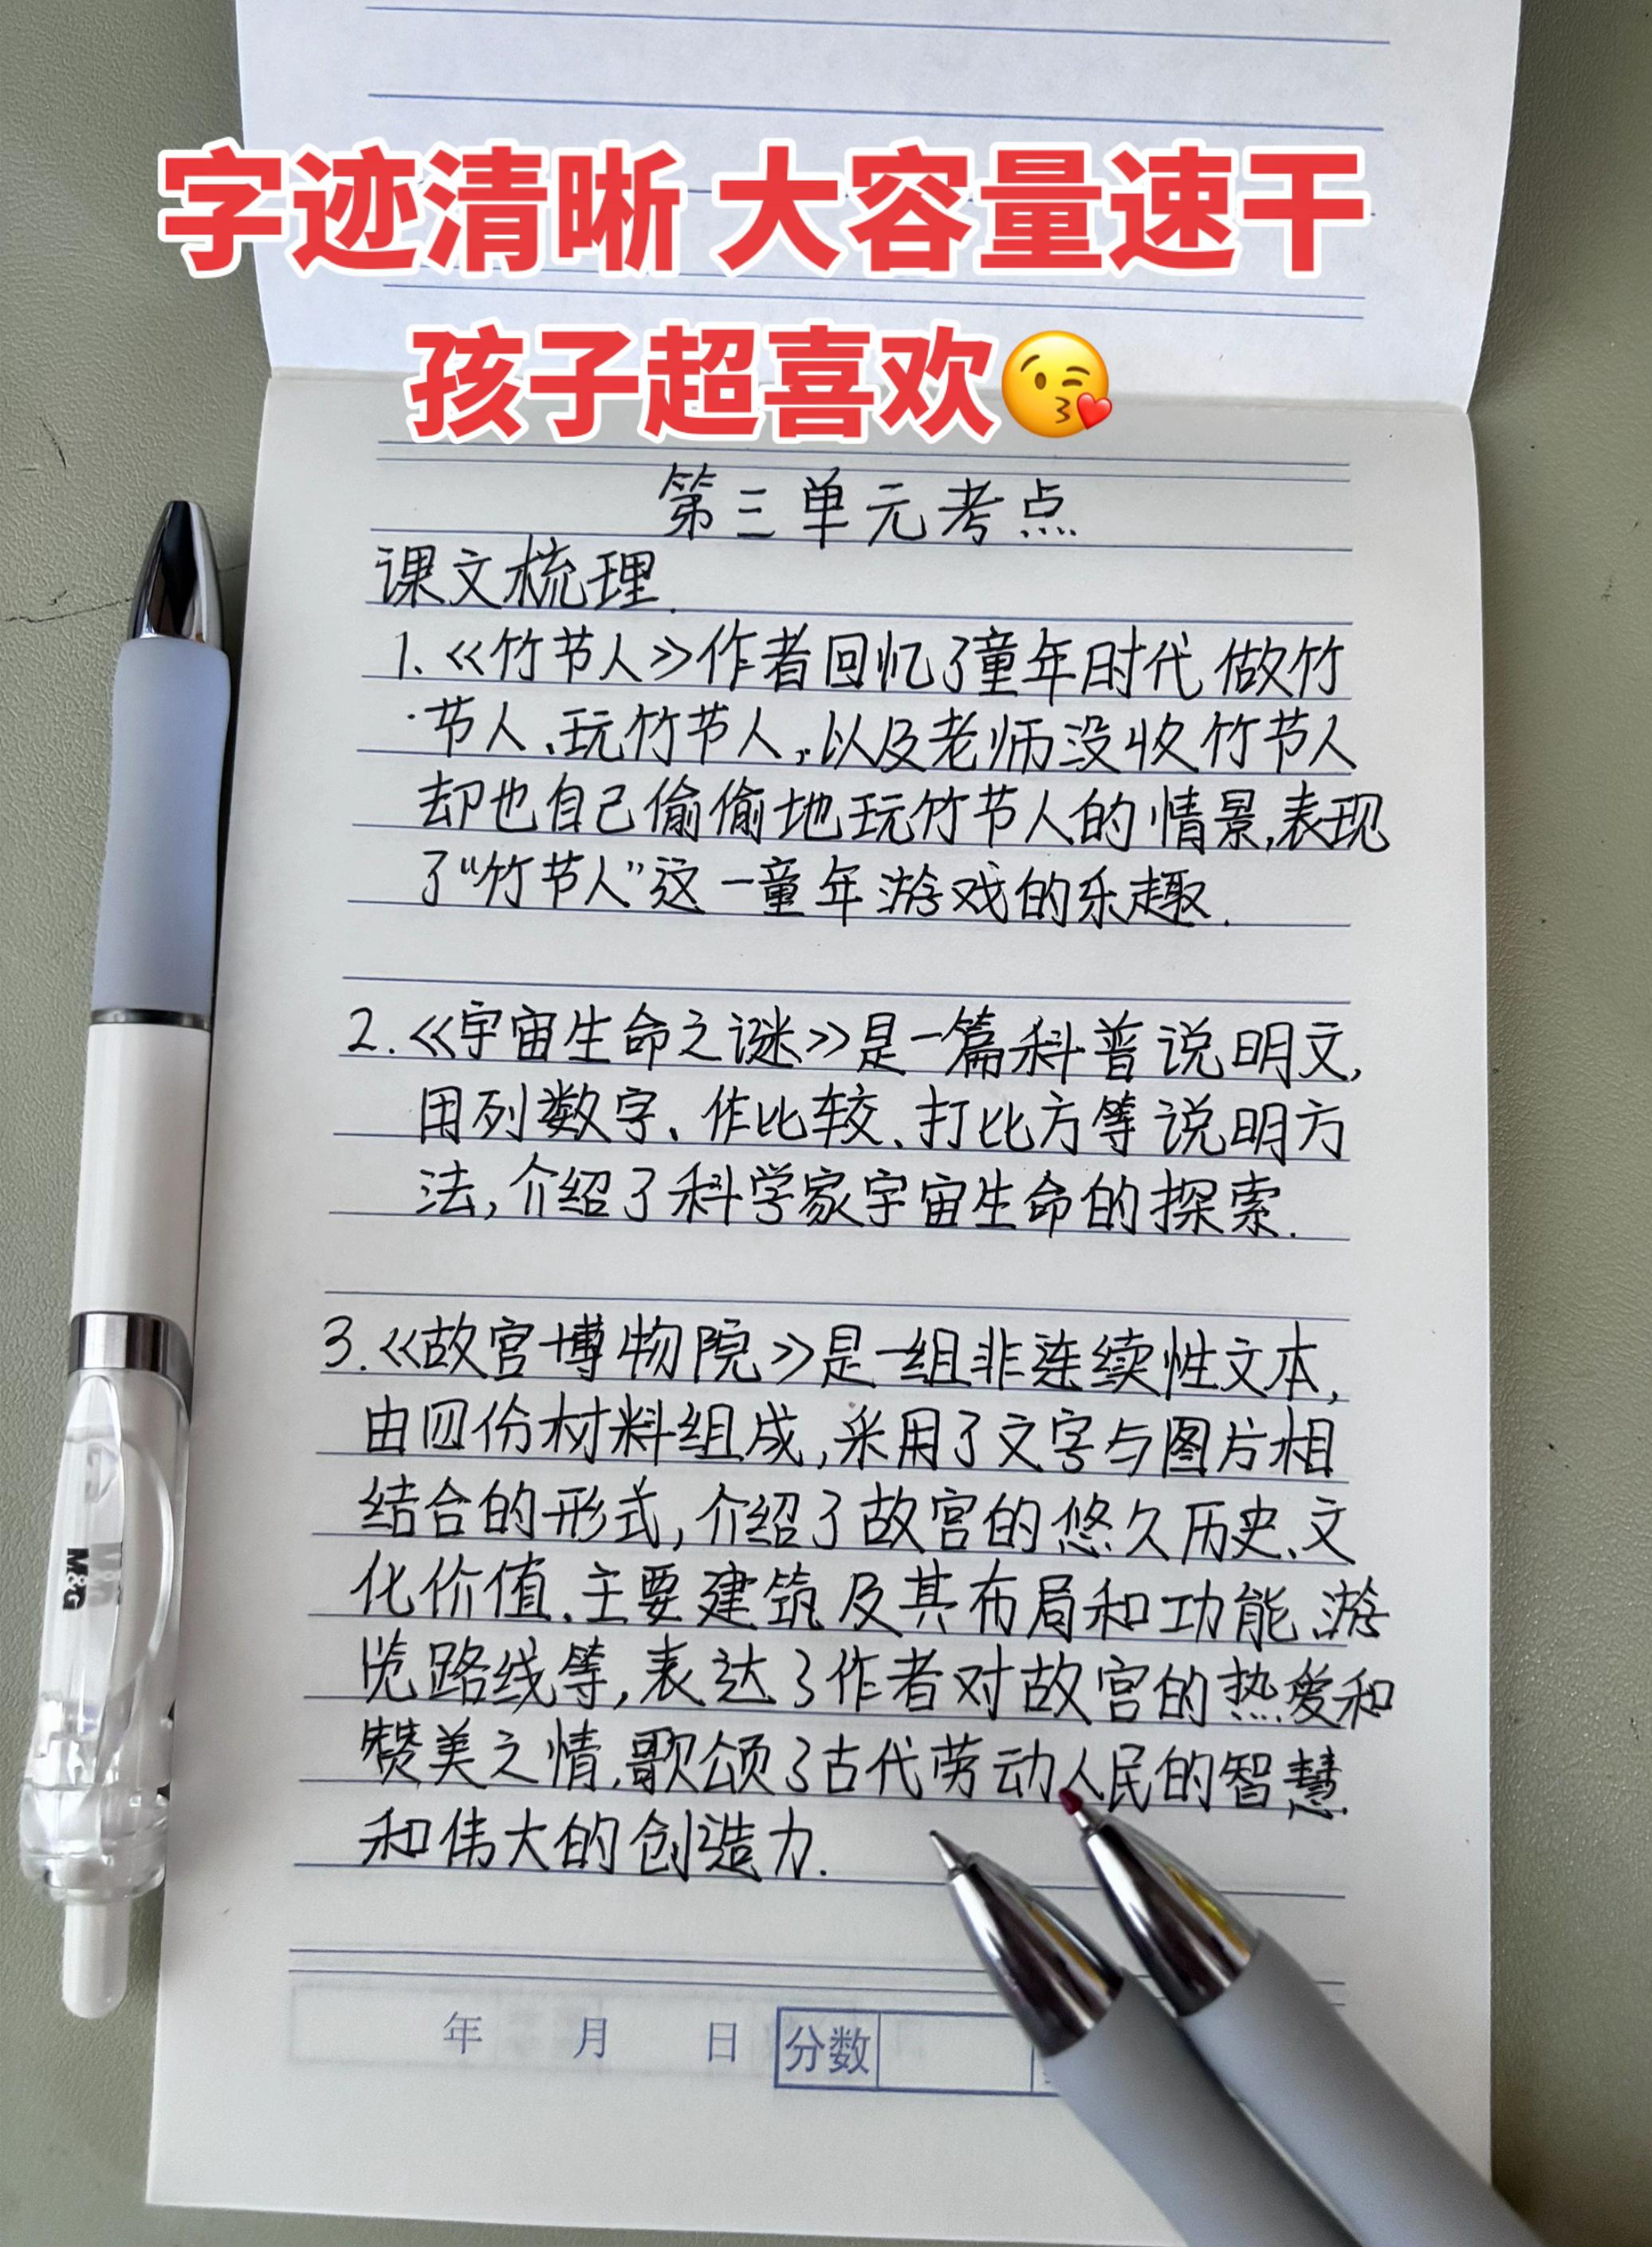 字迹清晰 大容量速干
孩子超喜欢😘
第三单元考点
课文梳理.
1.《竹节人》作者回忆了童年时代做竹
节人、玩竹节人,以及老师没收竹节人
却也自己偷偷地玩竹节人的情景,表现
了“竹节人”这一童年游戏的乐趣.
2.《宇宙生命之谜》是一篇科普说明文,
用列数字、作比较、打比方等说明方
法,介绍了科学家宇宙生命的探索.
3.《故宫博物院》是一组非连续性文本,
由四份材料组成,采用了文字与图片相
结合的形式,介绍了故宫的悠久历史、文
化价值、主要建筑及其布局和功能、游
览路线等,表达了作者对故宫的热爱和
赞美之情,歌颂了古代劳动人民的智慧
和伟大的创造力.
年 月 日 分数
M&G